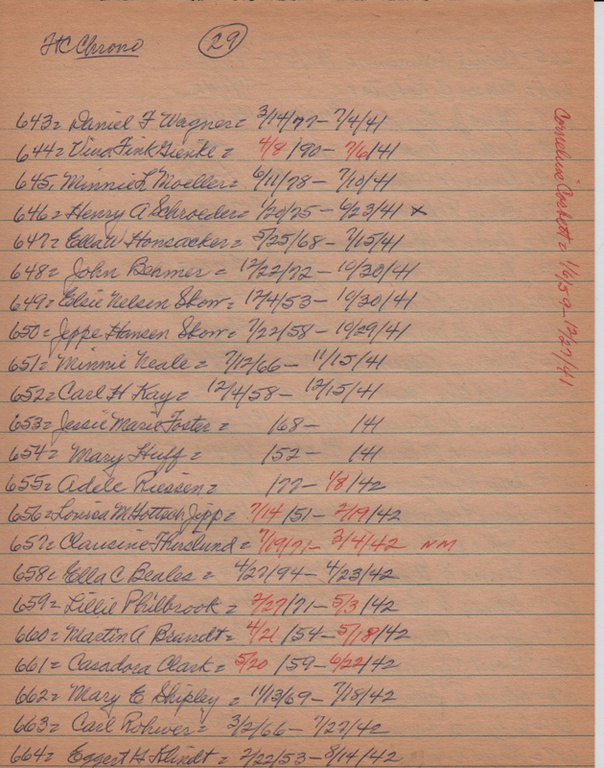 HC Chrono 29
643= Daniel F Wagner= 3/14/77- 7/4/41
644= Fink = 4/8/90- 7/6/41
645, Minnie L Moeller= 6/11/78- 7/10/41
646= Henry A Schroeder= 1/20/75- 6/23/41 x
647= Ella W Honsacker= 5/25/68- 7/15/41
648= John Behmer= 12/22/72- 10/30/41
649= Elsie Nelsen Skow= 12/4/53- 10/30/41
650= Jeppe Hansen Skow= 7/22/58- 10/29/41
651= Minnie Neale= 7/12/66- 11/15/41
652= Carl H Kay= 12/4/58- 12/15/41
653= Jessie Marie Foster= /68- /41
654= Mary Huff= /52- /41
655= Adele Riessen= /77- 1/8/42
656= Louisa M Jepp= 7/14/51- 2/19/42
657= = 7/19/71- 3/4/42 NM
658= Ella C Beales= 4/27/94- 4/23/42
659= Lillie Philbrook= 2/27/71- 5/3/42
660= Martin A Brandt= 4/21/54- 5/18/42
661= Casadora Clark= 5/20/59- 6/22/42
662= Mary E Shipley= 11/13/69- 7/18/42
663= Carl Rohwer= 3/2/66- 7/27/42
664= Eggert H Klindt= 2/22/53- 8/14/42
Cornelius = 1/6/59- 12/27/41